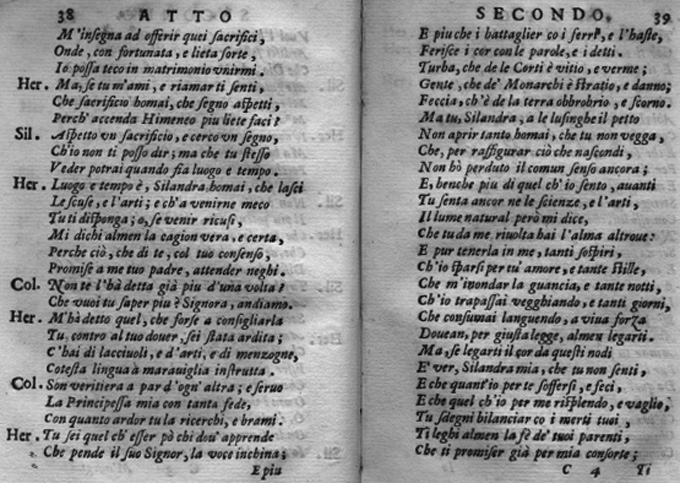 38 ATTO
M'insegna ad offerir quei sacrifici,
Onde, con fortunata, e lieta sorte,
Io possa teco in matrimonio vnirmi.
Her. Ma, se tu m'ami, e riamarti senti,
Che sacrificio homai, che segno aspetti,
Perch' accenda Himeneo piu liete faci?
Sil. Aspetto vn sacrificio, e cerco vn segno,
Ch'io non ti posso dir; ma che tu stesso
Veder potrai quando fia luogo e tempo.
Her. Luogo e tempo è, Silandra homai, che lasci
Le scuse, e l'arti; e ch'a venirne meco
Tu ti disponga; o, se venir ricusi,
Mi dichi almen la cagion vera, e certa,
Perche ciò, che di te, col tuo consenso,
Promise a me tuo padre, attender neghi.
Col. Non te l'hà detta già piu d'una volta?
Che vuoi tu saper piu è Signora, andiamo.
Her. M'hà detto quel, che forse a consigliarla
Tu, contro al tuo douer, sei stata ardita;
C'hai di lacciuoli, e d'arti, e di menzogne,
Cotesta lingua à marauiglia instrutta.
Col. Son veritiera a par d'ogn' altra; e seruo
La Principessa mia con tanta fede,
Con quanto ardor tu la ricerchi, e brami.
Her. Tu sei quel ch'esser pò chi dou' apprende
Che pende il suo Signor, la voce inchina;
E piu
SECONDO. 39
E piu che i battaglier co i ferri, e l'haste,
Ferisce i cor con le parole, e i detti.
Turba, che de le Corti è vitio, e verme;
Gente, che de' Monarchi è stratio, e danno;
Feccia, ch'è de la terra obbrobrio, e scorno.
Ma tu, Silandra, a le lusinghe il petto
Non aprir tanto homai, che tu non vegga,
Che, per raffigurar ciò che nascondi,
Non hò perduto il comun senso ancora;
E, benche piu di quel ch'io sento, auanti
Tu senta ancor ne le scienze, e l'arti,
Il lume natural però mi dice,
Che tu da me riuolta hai l'alma altroue:
E pur tenerla in me, tanti sospiri,
Ch'io sparsi per tu' amore, e tante stille,
Che m'inondar la guancia, e tante notti,
Ch'io trapassai vegghiando, e tanti giorni,
Che consumai languendo, a viua forza
Douean, per giusta legge, almen legarti.
Ma, se legarti il cor da questi nodi
E' ver, Silandra mia, che tu non senti,
E che quant'io per te soffersi, e feci,
E che quel ch'io per me risplendo, e vaglio,
Tu sdegni bilanciar co i merti tuoi,
Ti leghi almen la fè de' tuoi parenti,
Che ti promiser già per mia consorte;
C 4 Ti